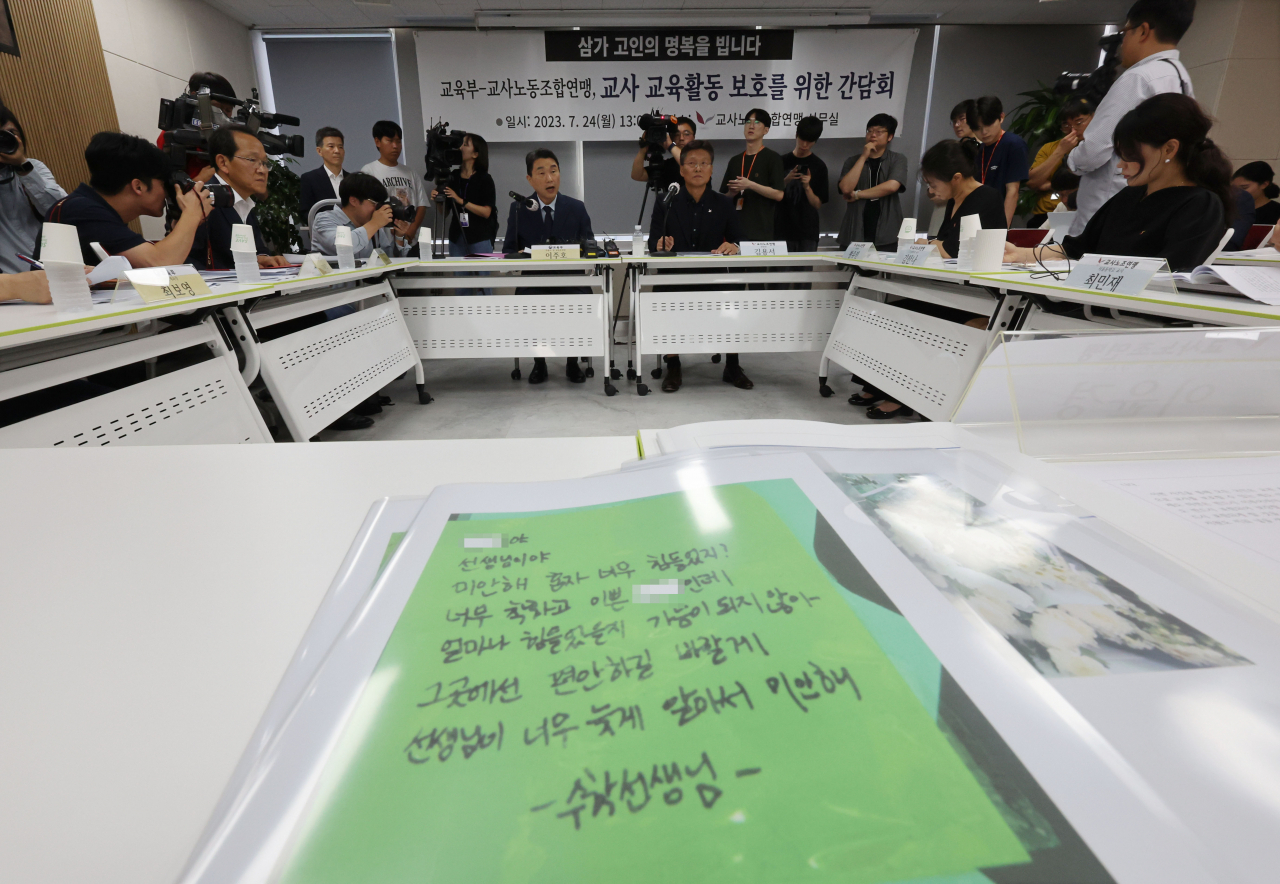 삼가 고인의 명복을 빕니다
교육부-교사노동조합연맹, 교사 교육활동 보호를 위한 간담회
●일시: 2023. 7. 24(월) 13:0 교사노 합연맹 사무실
ARCHIVE
최보영
이주호
김용서
최민재
야
선생님이야
미안해 혼자 너무 힘들었지?
너무 착하고 이쁜 인데
얼마나 힘들었을지 가늠이 되지 않아-
그곳에선 편안하길 바랄게
선생님이 너무 늦게 알아서 미안해
-수학선생님-